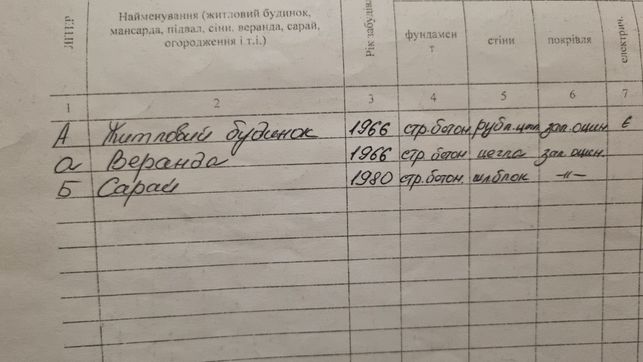 ЛІТЕР
Найменування (житловий будинок,
мансарда, підвал, сіни, веранда, сарай,
огородження і т.і.)
Рік забудів
фундамен
т
стіни
покрівля
електрич.
1 2 3 4 5 6 7
А Житловий будинок 1966 стр.бетон. рубл. цегл. зал. оцин. є
а Веранда 1966 стр.бетон. цегла зал. оцин.
Б Сарай 1980 стр.бетон. шлблок —"—